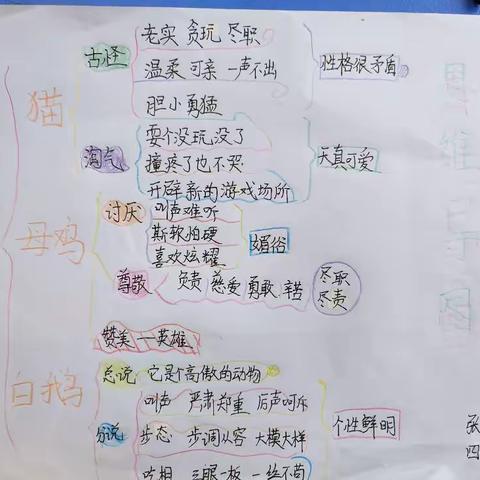 猫
古怪
老实 贪玩 尽职
温柔 可亲 一声不出
胆小勇猛
性格很矛盾
淘气
耍个没玩没了
撞疼了也不哭
开辟新的游戏场所
天真可爱
母鸡
讨厌
叫声难听
欺软怕硬
喜欢炫耀
媚俗
尊敬
负责 慈爱 勇敢 辛苦
尽职
尽责
赞美一英雄
白鹅
总说 它是个高傲的动物
分说
叫声 严肃郑重 厉声呵斥
步态 步调从容 大模大样
吃相 三眼一板 一丝不苟
个性鲜明
思维导图
张
四